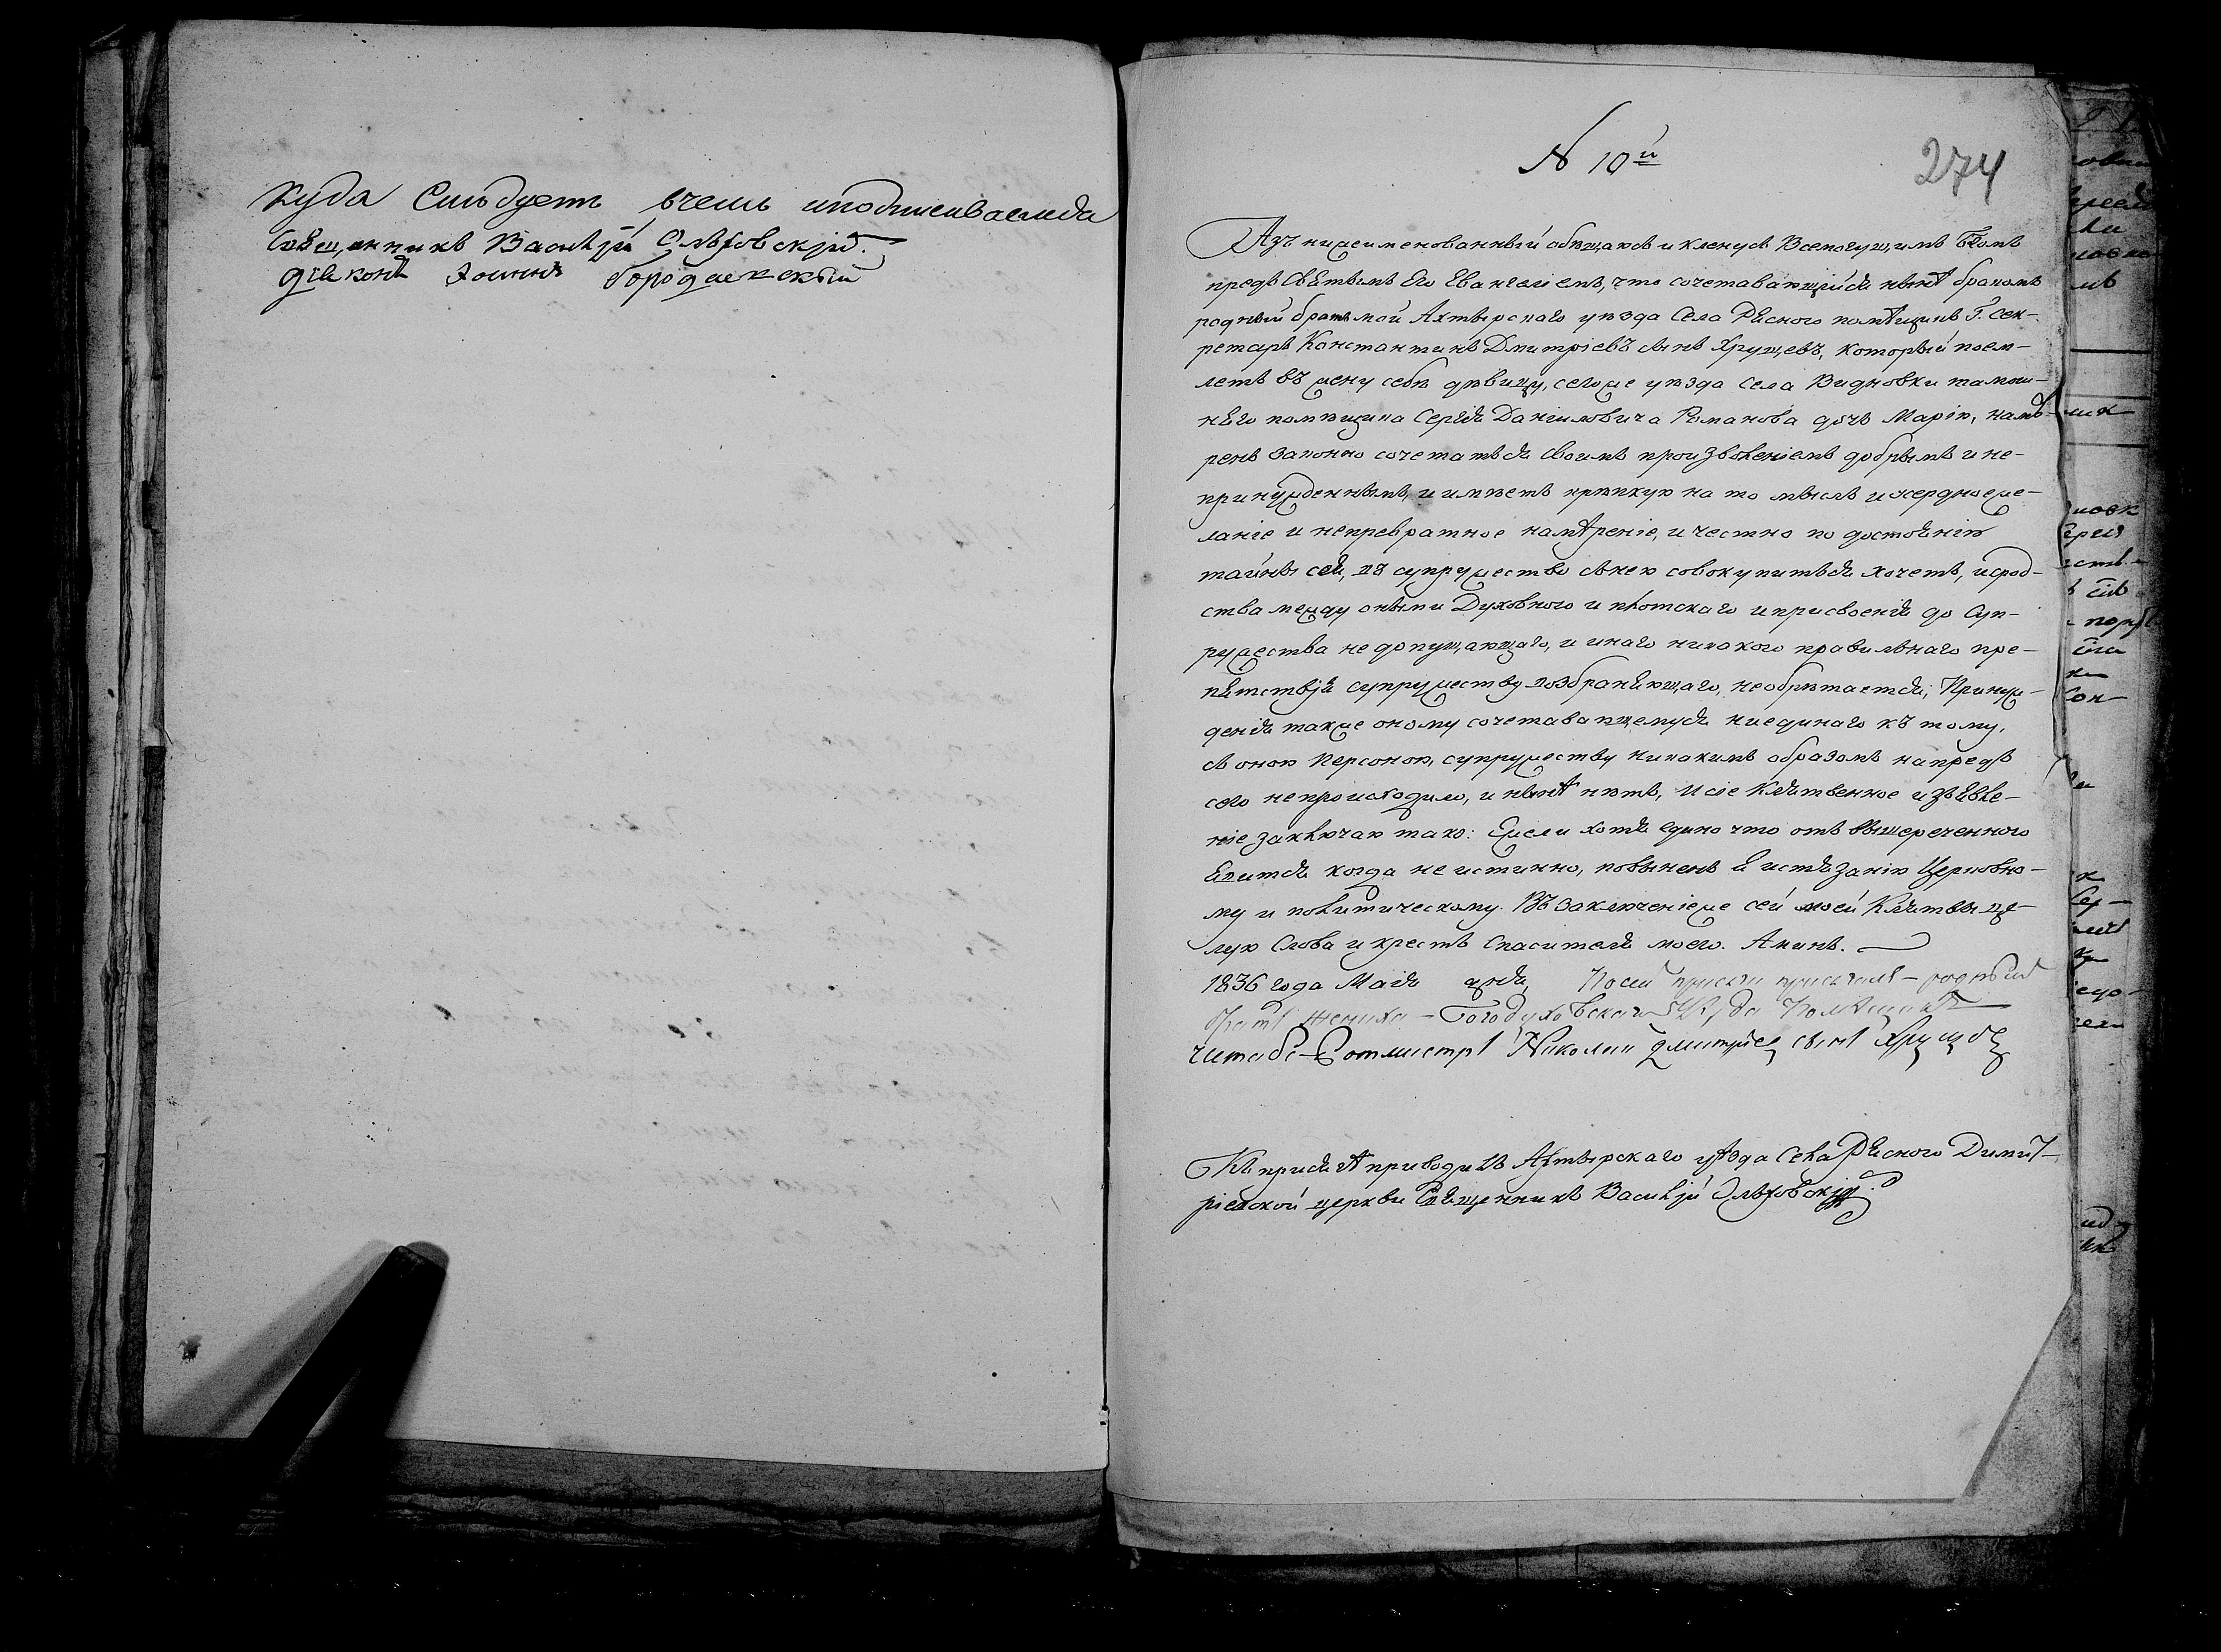 куда Слѣдуетъ вчемъ иподписываемся
Священникъ Василій Ольховскій.
діаконъ Іоаннъ Городаевскій
N 10й
274
Азъ нижеименованный обѣщаюсь и кленусь Всемогущимъ Бгомъ
предъ Святымъ Его Евангеліемъ, что сочетавающійся нынѣ бракомъ
родный братъ мой Ахтырскаго уѣзда Села Рясного помѣщикъ Г. Сек-
ретарь Константинъ Дмитріевъ сынъ Хрущевъ, который поем-
летъ въ жену себѣ дѣвицу, сегоже уѣзда села Видновки тамош-
няго помѣщика Сергія Даниловича Романова дочь Марію, намѣ-
ренъ законно сочетаться своимъ произволеніемъ добрымъ и не-
принужденнымъ, и имѣетъ крѣпкую на то мысль и усердное же-
ланіе и непревратное намѣреніе, и честно по достоянію
тайны сея, въ супружество снею совокупиться хочетъ, и срод-
ства между оными Духовного и плотскаго и присвоенія до Суп-
ружества не допущающаго, и инаго никакого правильнаго пре-
пятствія супружеству возбраняющаго, необрѣтается; Принуж-
денія также оному сочетавающемуся ниединаго къ тому,
съ оною персоною, супружеству никакимъ образомъ напредъ
сего непроисходило, и нынѣ нѣтъ, и сіе Клятвенное изъявле-
ніе заключаю тако: Ежели хотя едино что отъ вышереченного
явится когда не истинно, повыненъ я истязанію Церковно-
му и политическому. Въ заключеніеже сей моей Клятвы цѣ-
лую Слова и крестъ Спасителя моего. Аминь.
1836 года Маія дня, По сей присяги присягалъ – родный
братъ жениха – Богодуховскаго Уѣзда Помѣщикъ
Штабс-Ротмистръ Николай Дмитріев сынъ Хрущов
Къ присягѣ приводилъ Ахтырскаго уѣзда Села Рясного Димит-
ріевской церкви Священникъ Василій Ольховскій